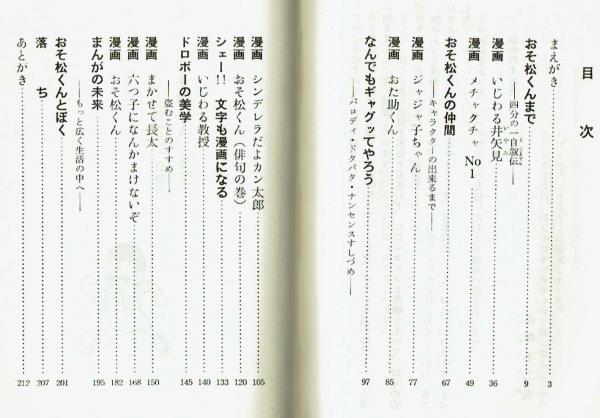 目次
まえがき 3
おそ松くんまで 9
――四分の一自叙伝――
漫画 いじわる井矢見 36
漫画 メチャクチャ No1 49
おそ松くんの仲間 67
――キャラクターの出来るまで――
漫画 ジャジャ子ちゃん 77
漫画 おた助くん 85
なんでもギャグッてやろう 97
――パロディ・ドタバタ・ナンセンスすしづめ――
漫画 シンデレラだよカン太郎 105
漫画 おそ松くん(俳句の巻) 120
シェー!! 文字も漫画になる 133
漫画 いじわる教授 140
ドロボーの美学 145
――盗むことのすすめ――
漫画 まかせて長太 150
漫画 六つ子になんかまけないぞ 168
漫画 おそ松くん 182
まんがの未来 195
――もっと広く生活の中へ――
おそ松くんとぼく 201
落ち 207
あとがき 212